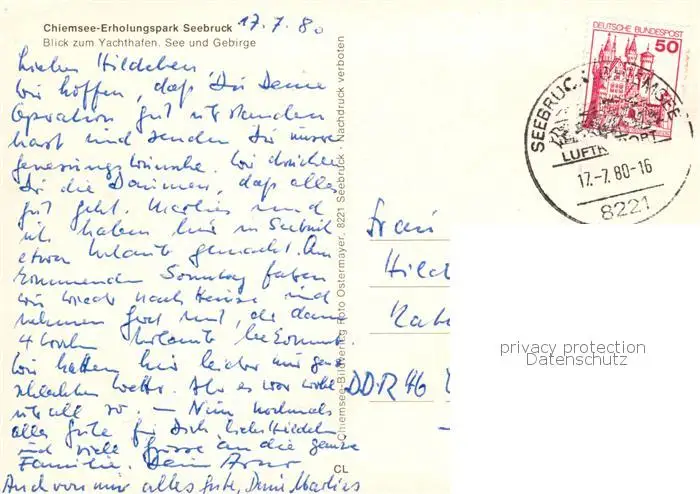 Chiemsee-Erholungspark Seebruck 17.7.80
Blick zum Yachthafen, See und Gebirge
Liebes Hildchen,
Wir hoffen, daß Du Deine
Operation gut überstanden
hast und senden Dir unsere
Genesungswünsche. Wir drücken
Dir die Daumen, daß alles
gut geht. Marlies und
ich haben hier in Seebruck
etwas Urlaub gemacht. Am
kommenden Sonntag fahren
wir wieder nach Hause und
nehmen Gerd mit, der dann
4 Wochen Urlaub bekommt.
Wir hatten hier leider nur ganz
schlechtes Wetter. Aber es war wohl
überall so. – Nun nochmals
alles Gute für Dich, liebes Hildchen
und viele Grüsse an die ganze
Familie. Dein Arno
Auch von mir alles Gute, Deine Marlies
Chiemsee-Bildverlag Foto Ostermayer, 8221 Seebruck · Nachdruck verboten
CL
DEUTSCHE BUNDESPOST
50
SEEBRUCK CHIEMSEE
LUFTKURORT
17.-7.80-16
8221
Frau
Hild
Rat
DDR 46
privacy protection
Datenschutz